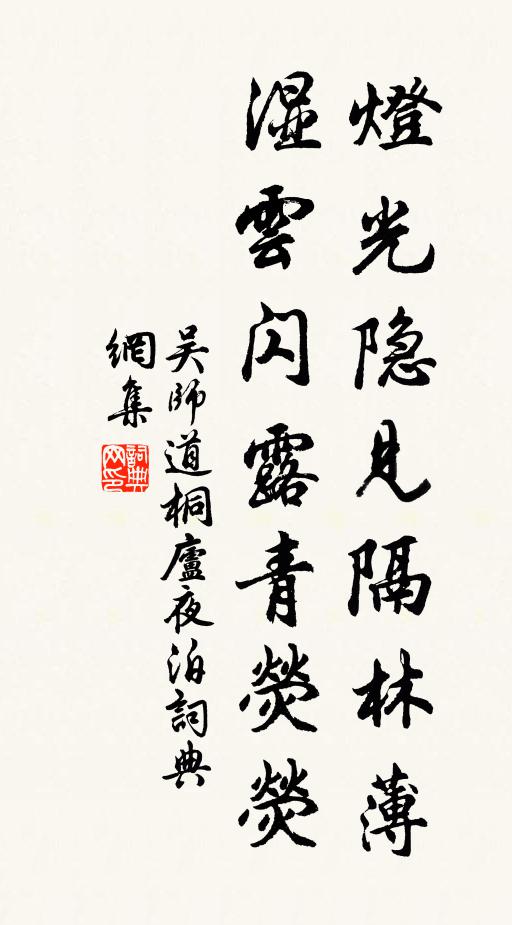 燈光隐見隔林薄
湿雲閃露青熒熒
吴師道桐廬夜泊詞典
網集
詞典
网印